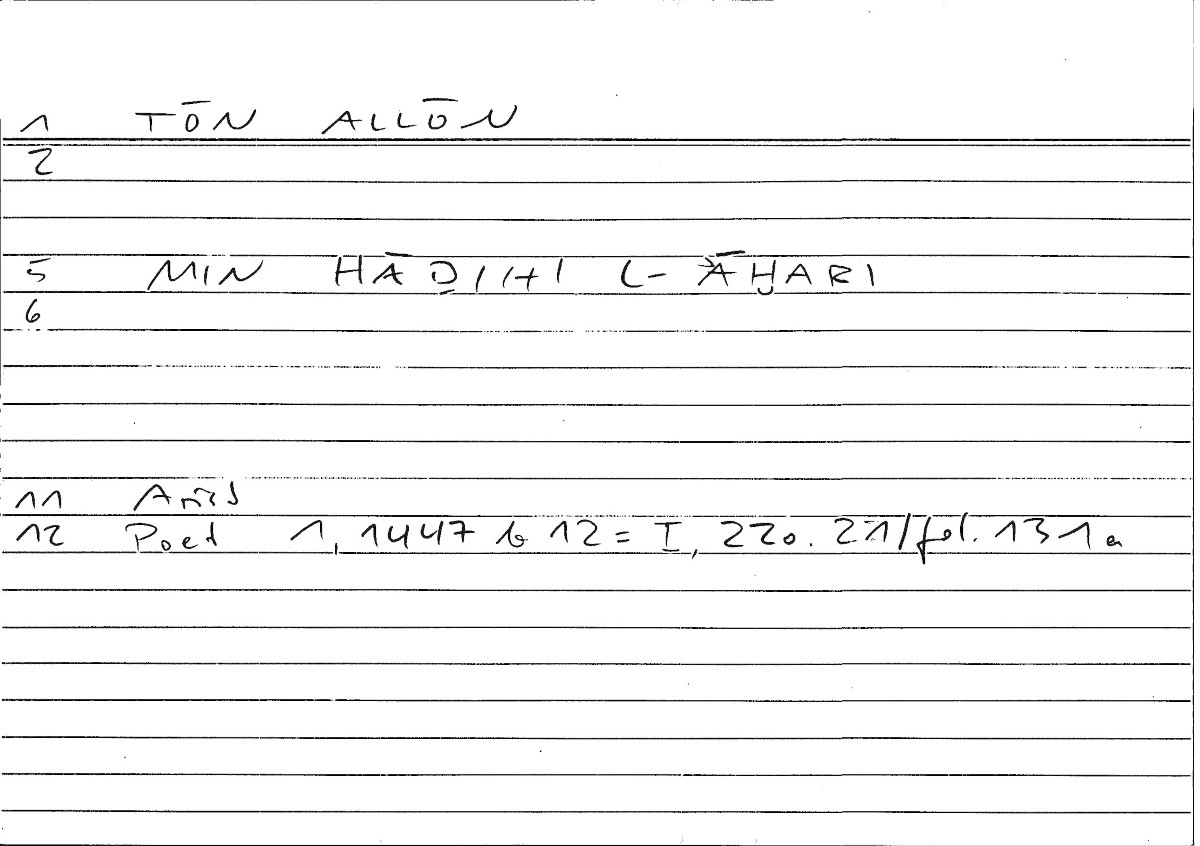 1 TŌN ALLŌN
2
5 MIN HĀḎIHI L-ĀḪARI
6
11 Arist
12 Poet 1, 1447 b 12 = I, 220. 21/fol. 131a